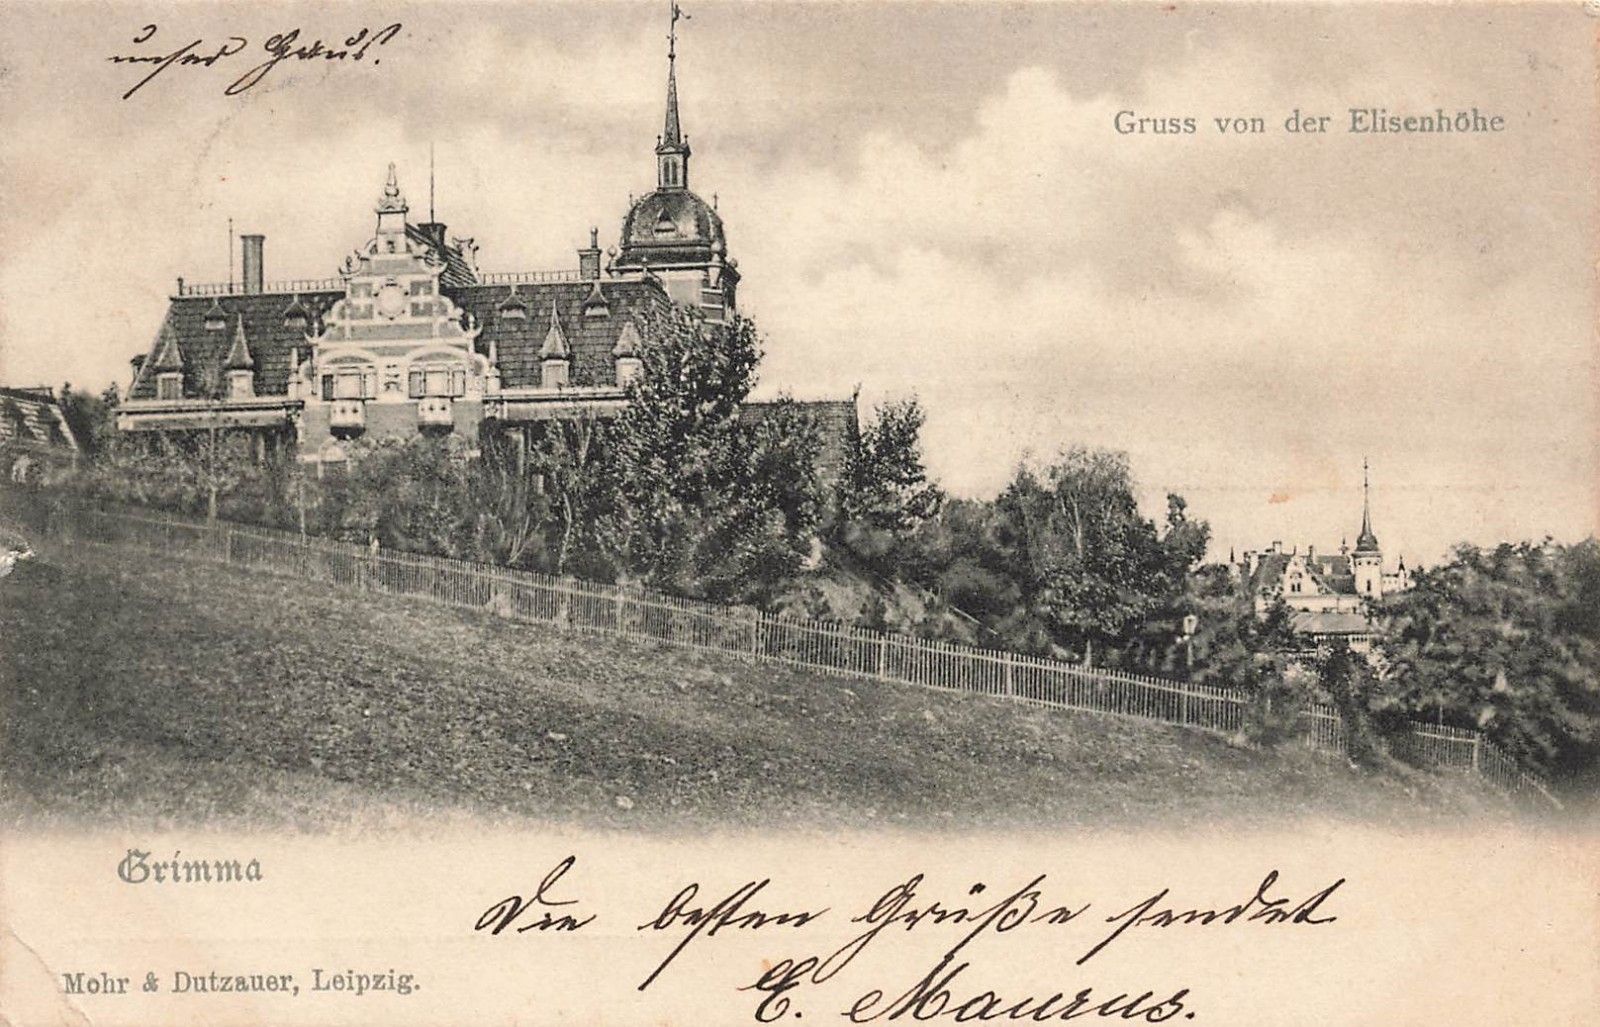 unser Haus.
Gruss von der Elisenhöhe
Grimma
Die besten Grüße sendet
E. Maurus.
Mohr & Dutzauer, Leipzig.